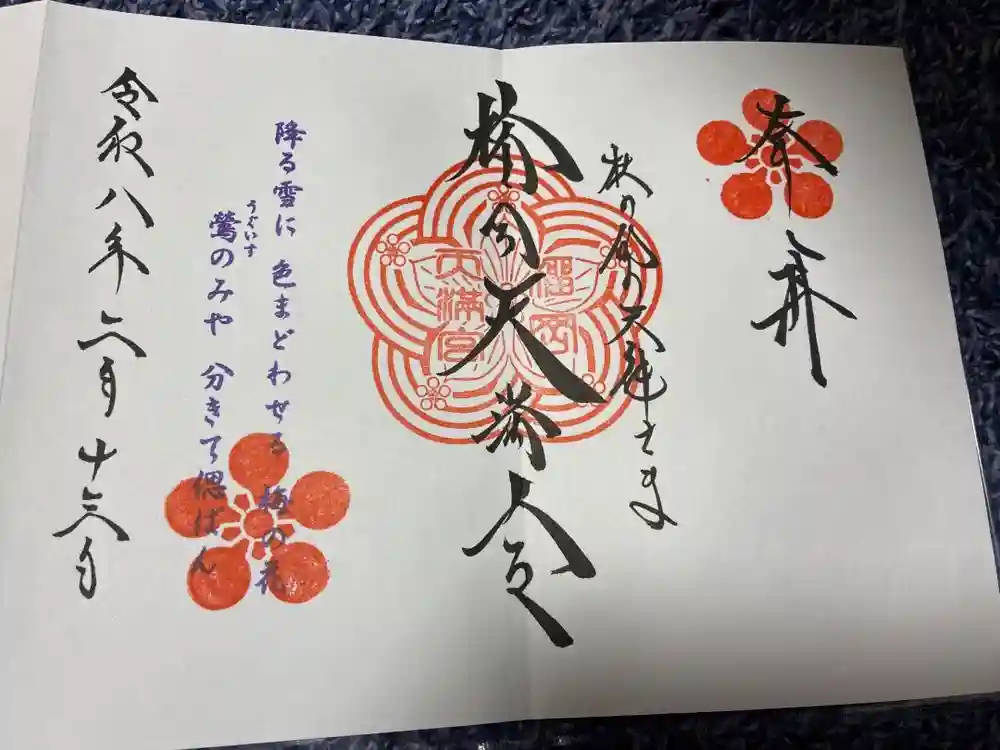 奉拝
杜の都の天神さま
榴岡天満宮
榴岡
天満宮
降る雪に 色まどわせる 梅の花
うぐいす
鶯のみや 分きて偲ばん
令和八年六月十六日